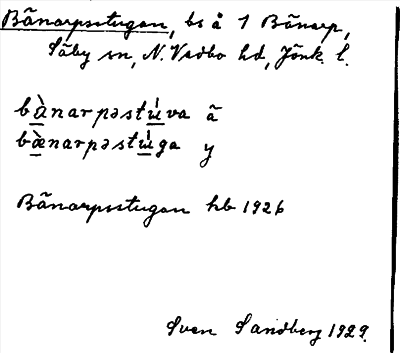 Bänarpsstugan, bs å 1 Bänarp,
Säby sn, N. Vedbo hd, Jönk. l.
bànarpəstú̱va ä
bæ̀narpəstú̱ga y
Bänarpsstugan hb 1926
Sven Sandberg 1929.